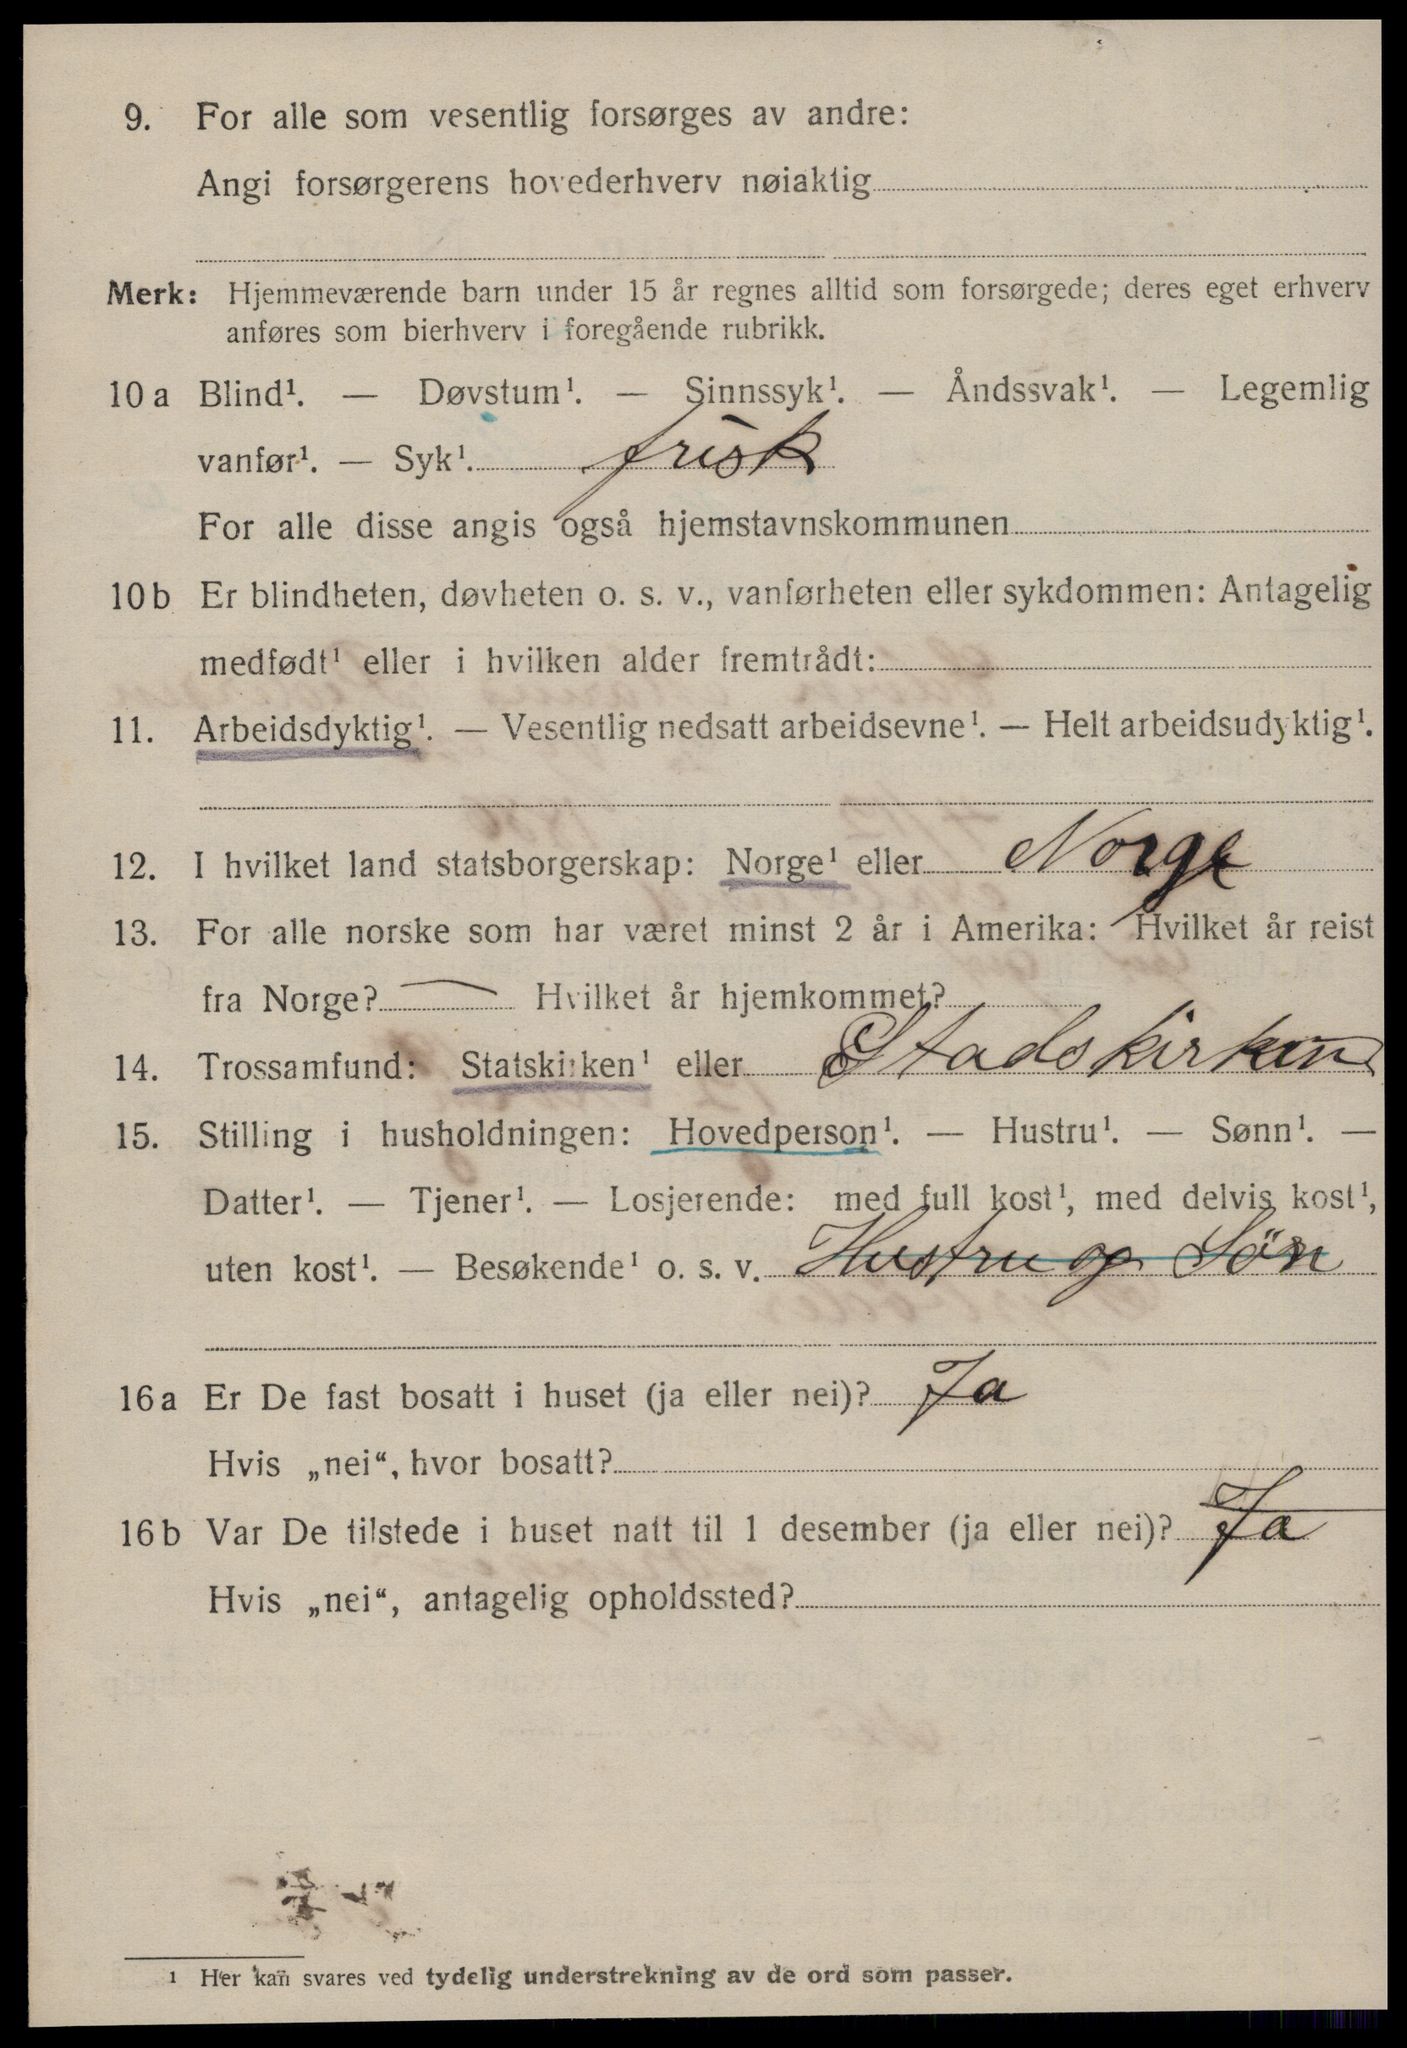 9. For alle som vesentlig forsørges av andre:
Angi forsørgerens hovederhverv nøiaktig
Merk: Hjemmeværende barn under 15 år regnes alltid som forsørgede; deres eget erhverv
anføres som bierhverv i foregående rubrikk.
10 a Blind¹. — Døvstum¹. — Sinnssyk¹. — Åndssvak¹. — Legemlig
vanfør¹. — Syk¹. frisk
For alle disse angis også hjemstavnskommunen
10 b Er blindheten, døvheten o. s. v., vanførheten eller sykdommen: Antagelig
medfødt¹ eller i hvilken alder fremtrådt:
11. Arbeidsdyktig¹. — Vesentlig nedsatt arbeidsevne¹. — Helt arbeidsudyktig¹.
12. I hvilket land statsborgerskap: Norge¹ eller Norge
13. For alle norske som har været minst 2 år i Amerika: Hvilket år reist
fra Norge? — Hvilket år hjemkommet?
14. Trossamfund: Statskirken¹ eller Stadskirken
15. Stilling i husholdningen: Hovedperson¹. — Hustru¹. — Sønn¹. —
Datter¹. — Tjener¹. — Losjerende: med full kost¹, med delvis kost¹,
uten kost¹. — Besøkende¹ o. s. v. Hustru og Sön
16 a Er De fast bosatt i huset (ja eller nei)? Ja
Hvis „nei“, hvor bosatt?
16 b Var De tilstede i huset natt til 1 desember (ja eller nei)? Ja
Hvis „nei“, antagelig opholdssted?
¹ Her kan svares ved tydelig understrekning av de ord som passer.